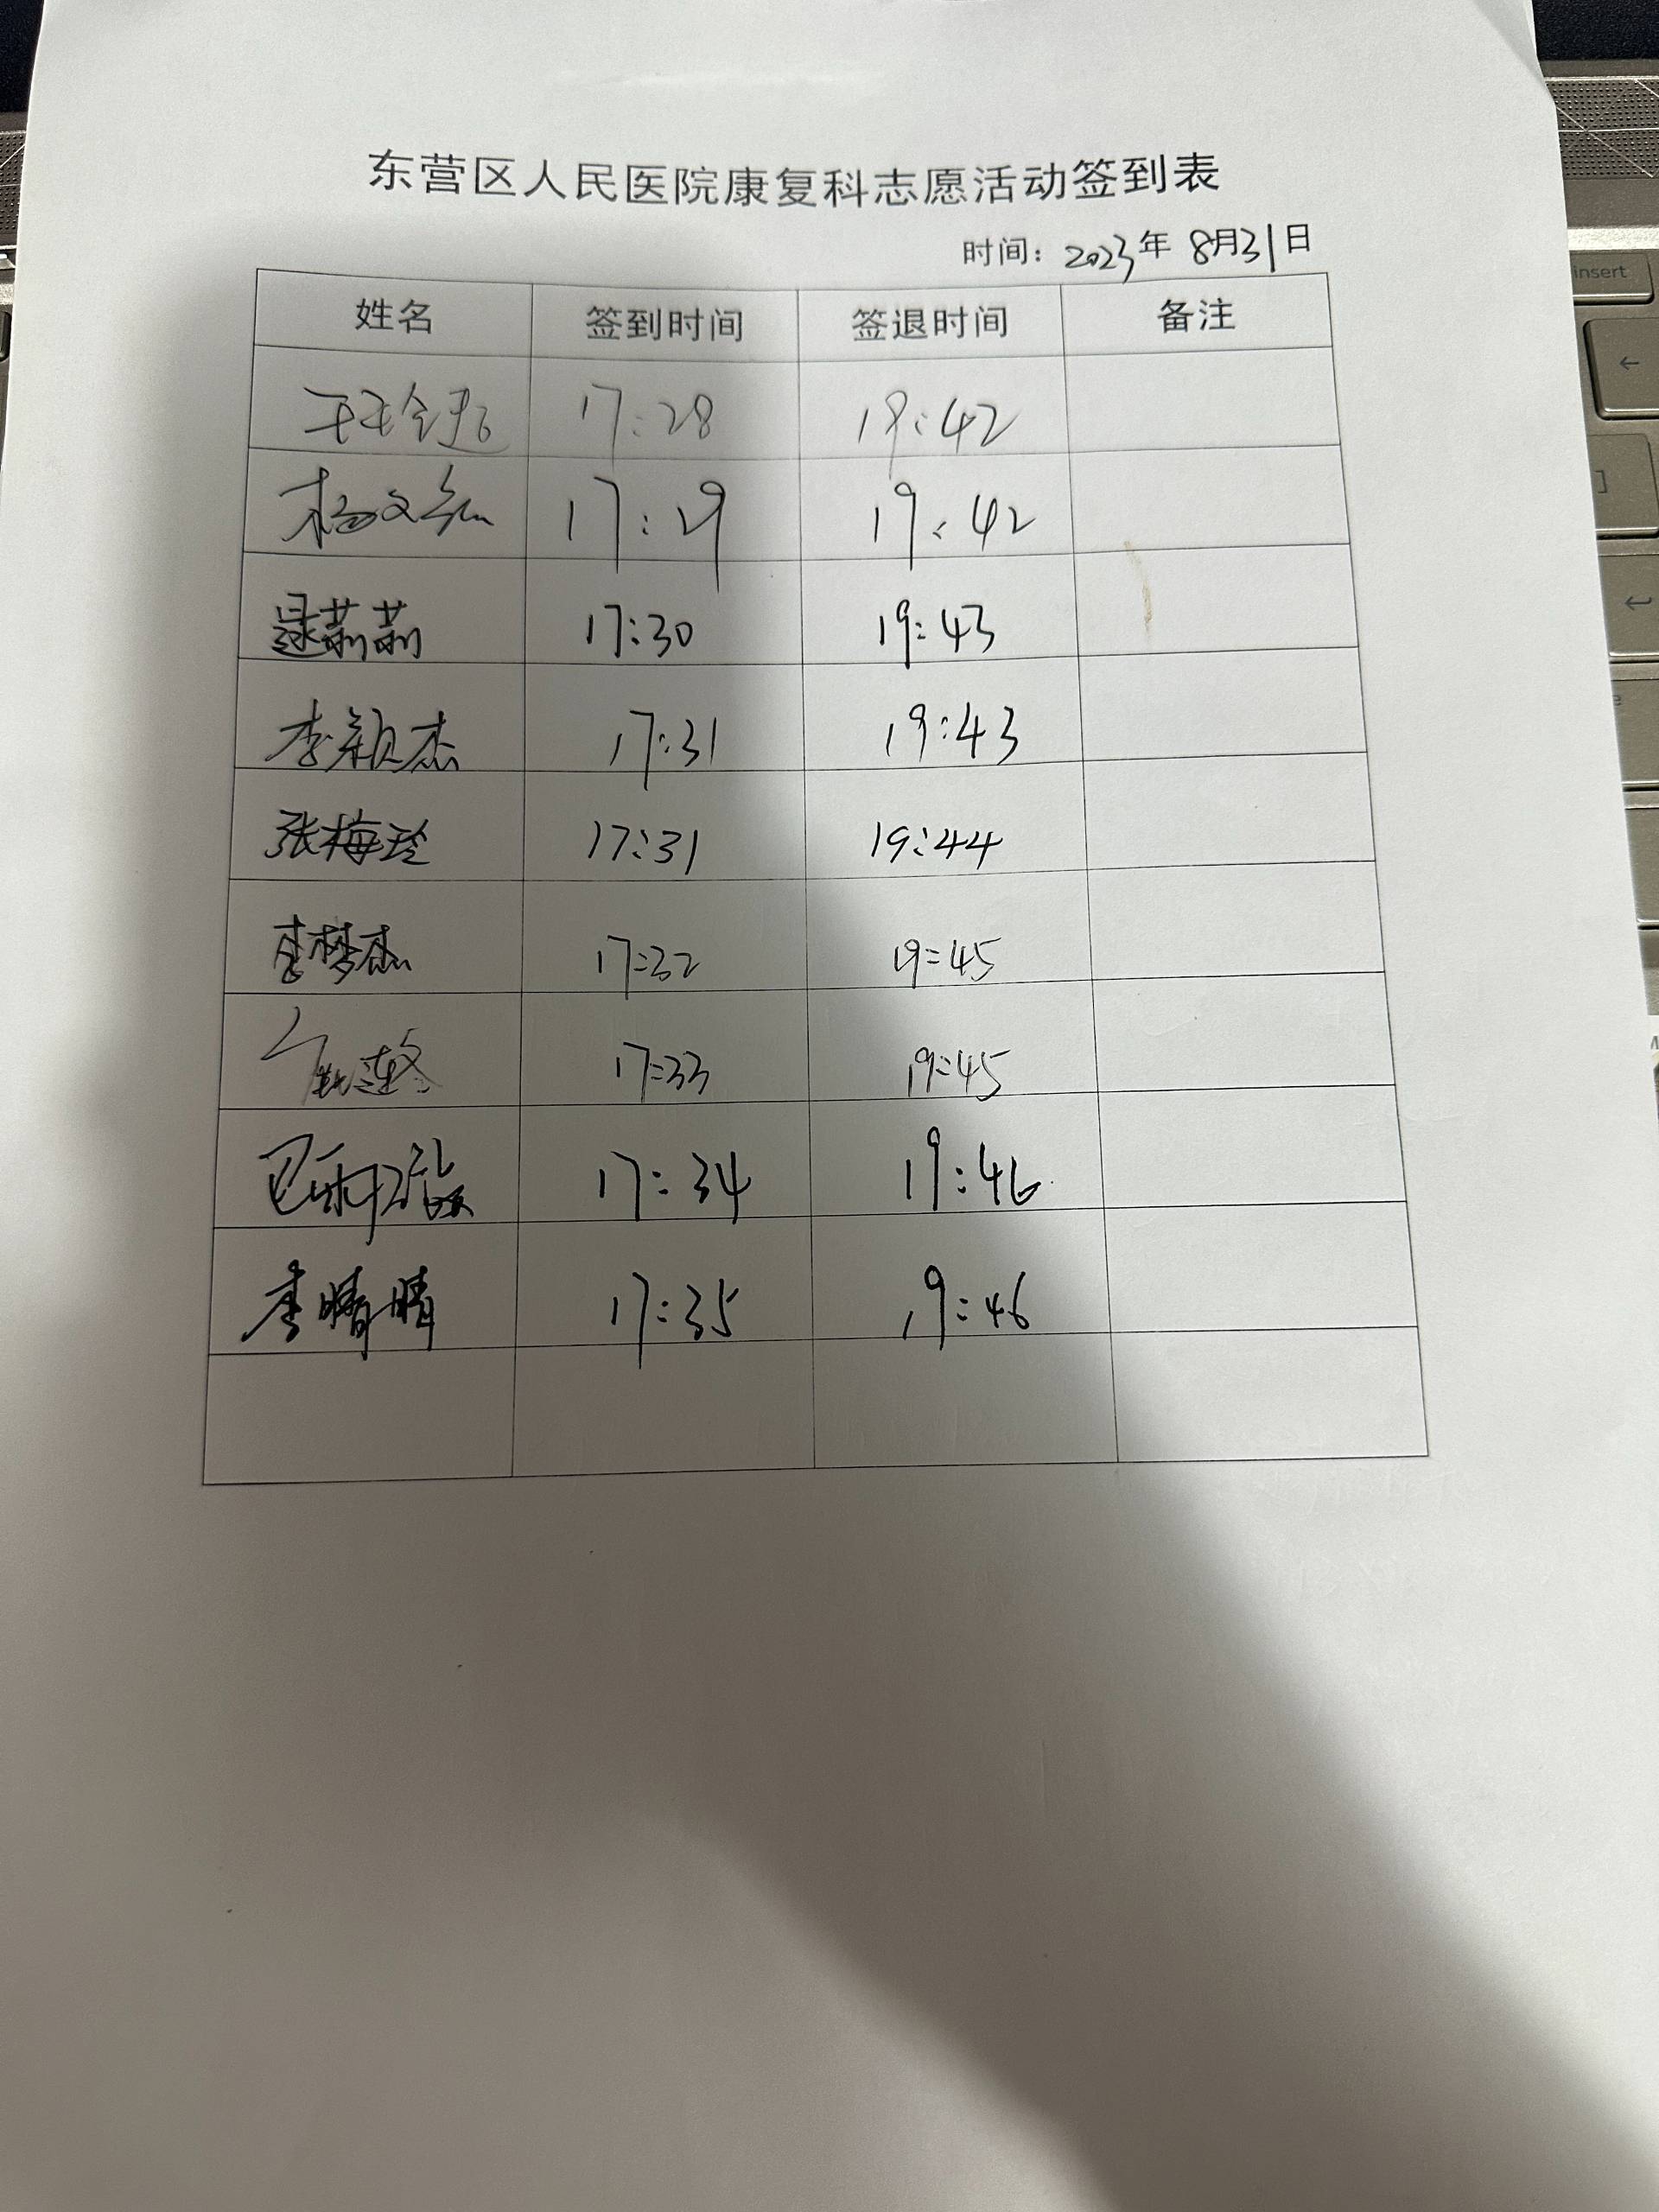 东营区人民医院康复科志愿活动签到表
时间：2023年 8月31日
姓名 签到时间 签退时间 备注
17:28 19:42
杨文 17:29 19:42
逯莉莉 17:30 19:43
李颖杰 17:31 19:43
张梅玲 17:31 19:44
李梦杰 17:32 19:45
17:33 19:45
17:34 19:46
李晴晴 17:35 19:46
insert